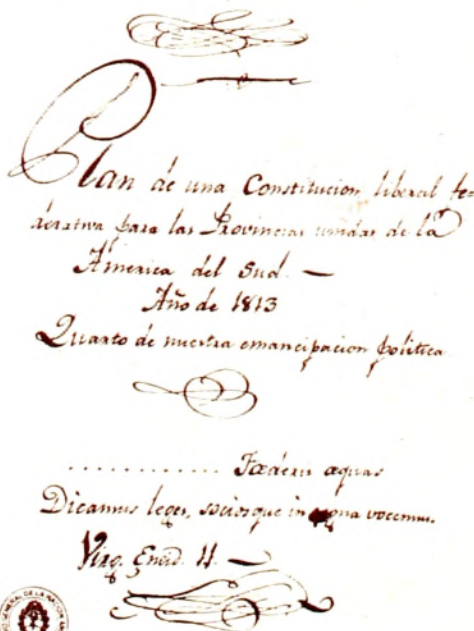 Plan de una Constitucion liberal fe=
derativa para las Provincias unidas de la
America del Sud. —
Año de 1813
Quarto de nuestra emancipacion politica
............ Fœderis æquas
Dicamus leges, sociosque in regna vocemus.
Virg. Eneid. 11. —
GENERAL DE LA NACION